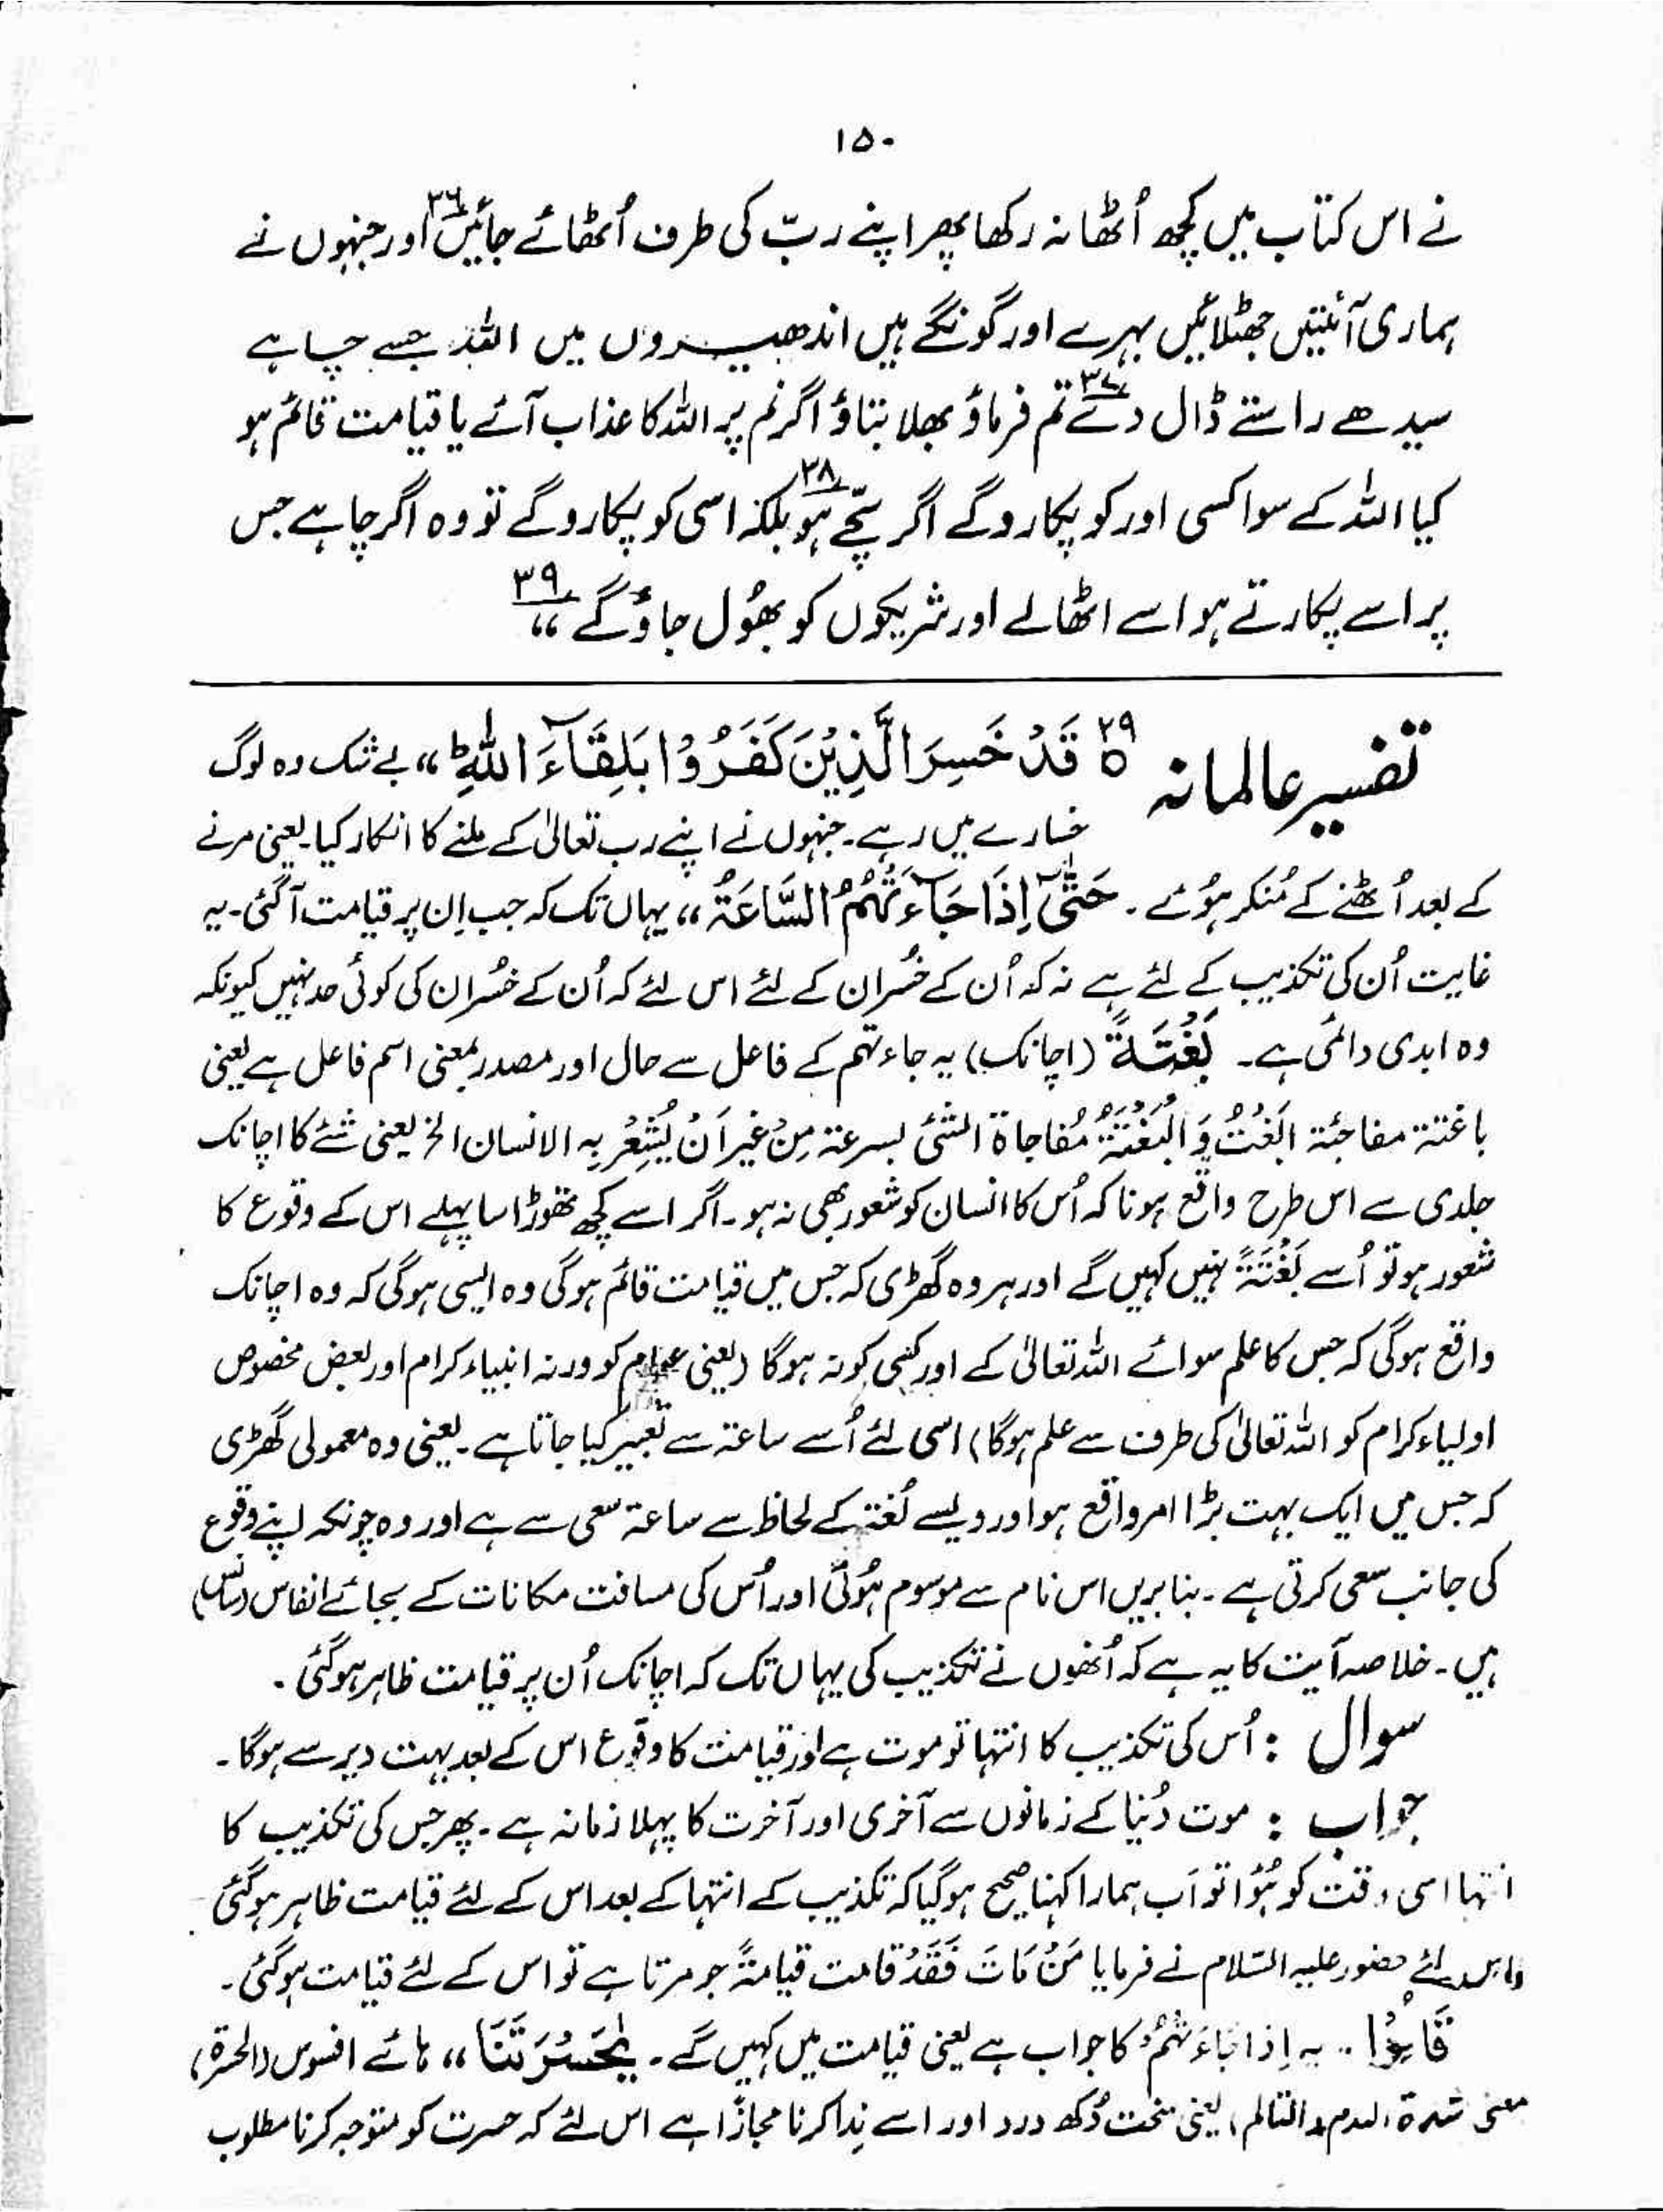 ۱۵۰
نے اس کتاب میں کچھ اُٹھا نہ رکھا پھر اپنے ربّ کی طرف اُٹھائے جائیں ۳۶ اور جنہوں نے
ہماری آئتیں جھٹلائیں بہرے اور گونگے ہیں اندھیروں میں اللہ جسے چاہے
سیدھے راستے ڈال دے ۳۷ تم فرماؤ بھلا بتاؤ اگر تم پر اللہ کا عذاب آئے یا قیامت قائم ہو
کیا اللہ کے سوا کسی اور کو پکارو گے اگر سچّے ہو ۳۸ بلکہ اسی کو پکارو گے تو وہ اگر چاہے جس
پر اسے پکارتے ہو اسے اٹھالے اور شریکوں کو بھُول جاؤ گے ۳۹ ،،
تفسیر عالمانہ ۲۹ ہ قَدْ خَسِرَ الَّذِیْنَ کَفَرُوْا بَلِقَآءَ اللّٰهِ ؕ ،، بے شک وہ لوگ
خسارے میں رہے۔ جنہوں نے اپنے رب تعالیٰ کے ملنے کا انکار کیا۔ یعنی مرنے
کے بعد اُٹھنے کے مُنکر ہوئے ۔ حَتّٰۤی اِذَا جَآءَتْهُمُ السَّاعَةُ ،، یہاں تک کہ جب اِن پر قیامت آگئی۔ یہ
غایت اُن کی تکذیب کے لئے ہے نہ کہ اُن کے خُسران کے لئے اس لئے کہ اُن کے خُسران کی کوئی حد نہیں کیونکہ
وہ ابدی دائمی ہے ۔ بَغْتَةً (اچانک) یہ جاءتهم کے فاعل سے حال اور مصدر بمعنی اسم فاعل ہے یعنی
باغتة مفاجئة البَغتُ وَ الْبَغْتَةُ مُفاجاة الشئ بسرعة مِنْ غیر اَنْ یُشِعُر بِہ الانسان الخ یعنی شئے کا اچانک
جلدی سے اس طرح واقع ہونا کہ اُس کا انسان کو شعور بھی نہ ہو ۔ اگر اسے کچھ تھوڑا سا پہلے اس کے وقوع کا
شعور ہو تو اُسے بَغْتَةً نہیں کہیں گے اور ہر وہ گھڑی کہ جس میں قیامت قائم ہوگی وہ ایسی ہوگی کہ وہ اچانک
واقع ہوگی کہ جس کا علم سوائے اللہ تعالیٰ کے اور کسی کو نہ ہوگا (یعنی عوام کو ورنہ انبیاء کرام اور بعض مخصوص
اولیاء کرام کو اللہ تعالیٰ کی طرف سے علم ہوگا) اسی لئے اُسے ساعة سے تعبیر کیا جاتا ہے ۔ یعنی وہ معمولی گھڑی
کہ جس میں ایک بہت بڑا امر واقع ہو اور ویسے لُغت کے لحاظ سے ساعة سعی سے ہے اور وہ چونکہ اپنے وقوع
کی جانب سعی کرتی ہے ۔ بنابریں اس نام سے موسوم ہُوئی اور اُس کی مسافت مکانات کے بجائے انفاس (سانس)
ہیں ۔ خلاصہ آیت کا یہ ہے کہ اُنھوں نے تکذیب کی یہاں تک کہ اچانک اُن پر قیامت ظاہر ہوگئی ۔
سوال : اُس کی تکذیب کا انتہا تو موت ہے اور قیامت کا وقوع اس کے بعد بہت دیر سے ہوگا ۔
جواب : موت دُنیا کے زمانوں سے آخری اور آخرت کا پہلا زمانہ ہے ۔ پھر جس کی تکذیب کا
انتہا اسی وقت کو ہُوا تو اَب ہمارا کہنا صحیح ہوگیا کہ تکذیب کے انتہا کے بعد اس کے لئے قیامت ظاہر ہوگئی
اس لئے حضور علیہ السّلام نے فرمایا مَنْ مَاتَ فَقَدْ قامت قیامتهٗ جو مرتا ہے تو اس کے لئے قیامت ہوگئی ۔
قَالُوْا ،، یہ اِذا جَاءَتْهُمُ کا جواب ہے یعنی قیامت میں کہیں گے ۔ یٰحَسْرَتَنَا ،، ہائے افسوس (الحسرة)
معنی شدة الندم و التالم، یعنی سخت دُکھ درد اور اسے نِدا کرنا مجازاً ہے اس لئے کہ حسرت کو متوجہ کرنا مطلوب